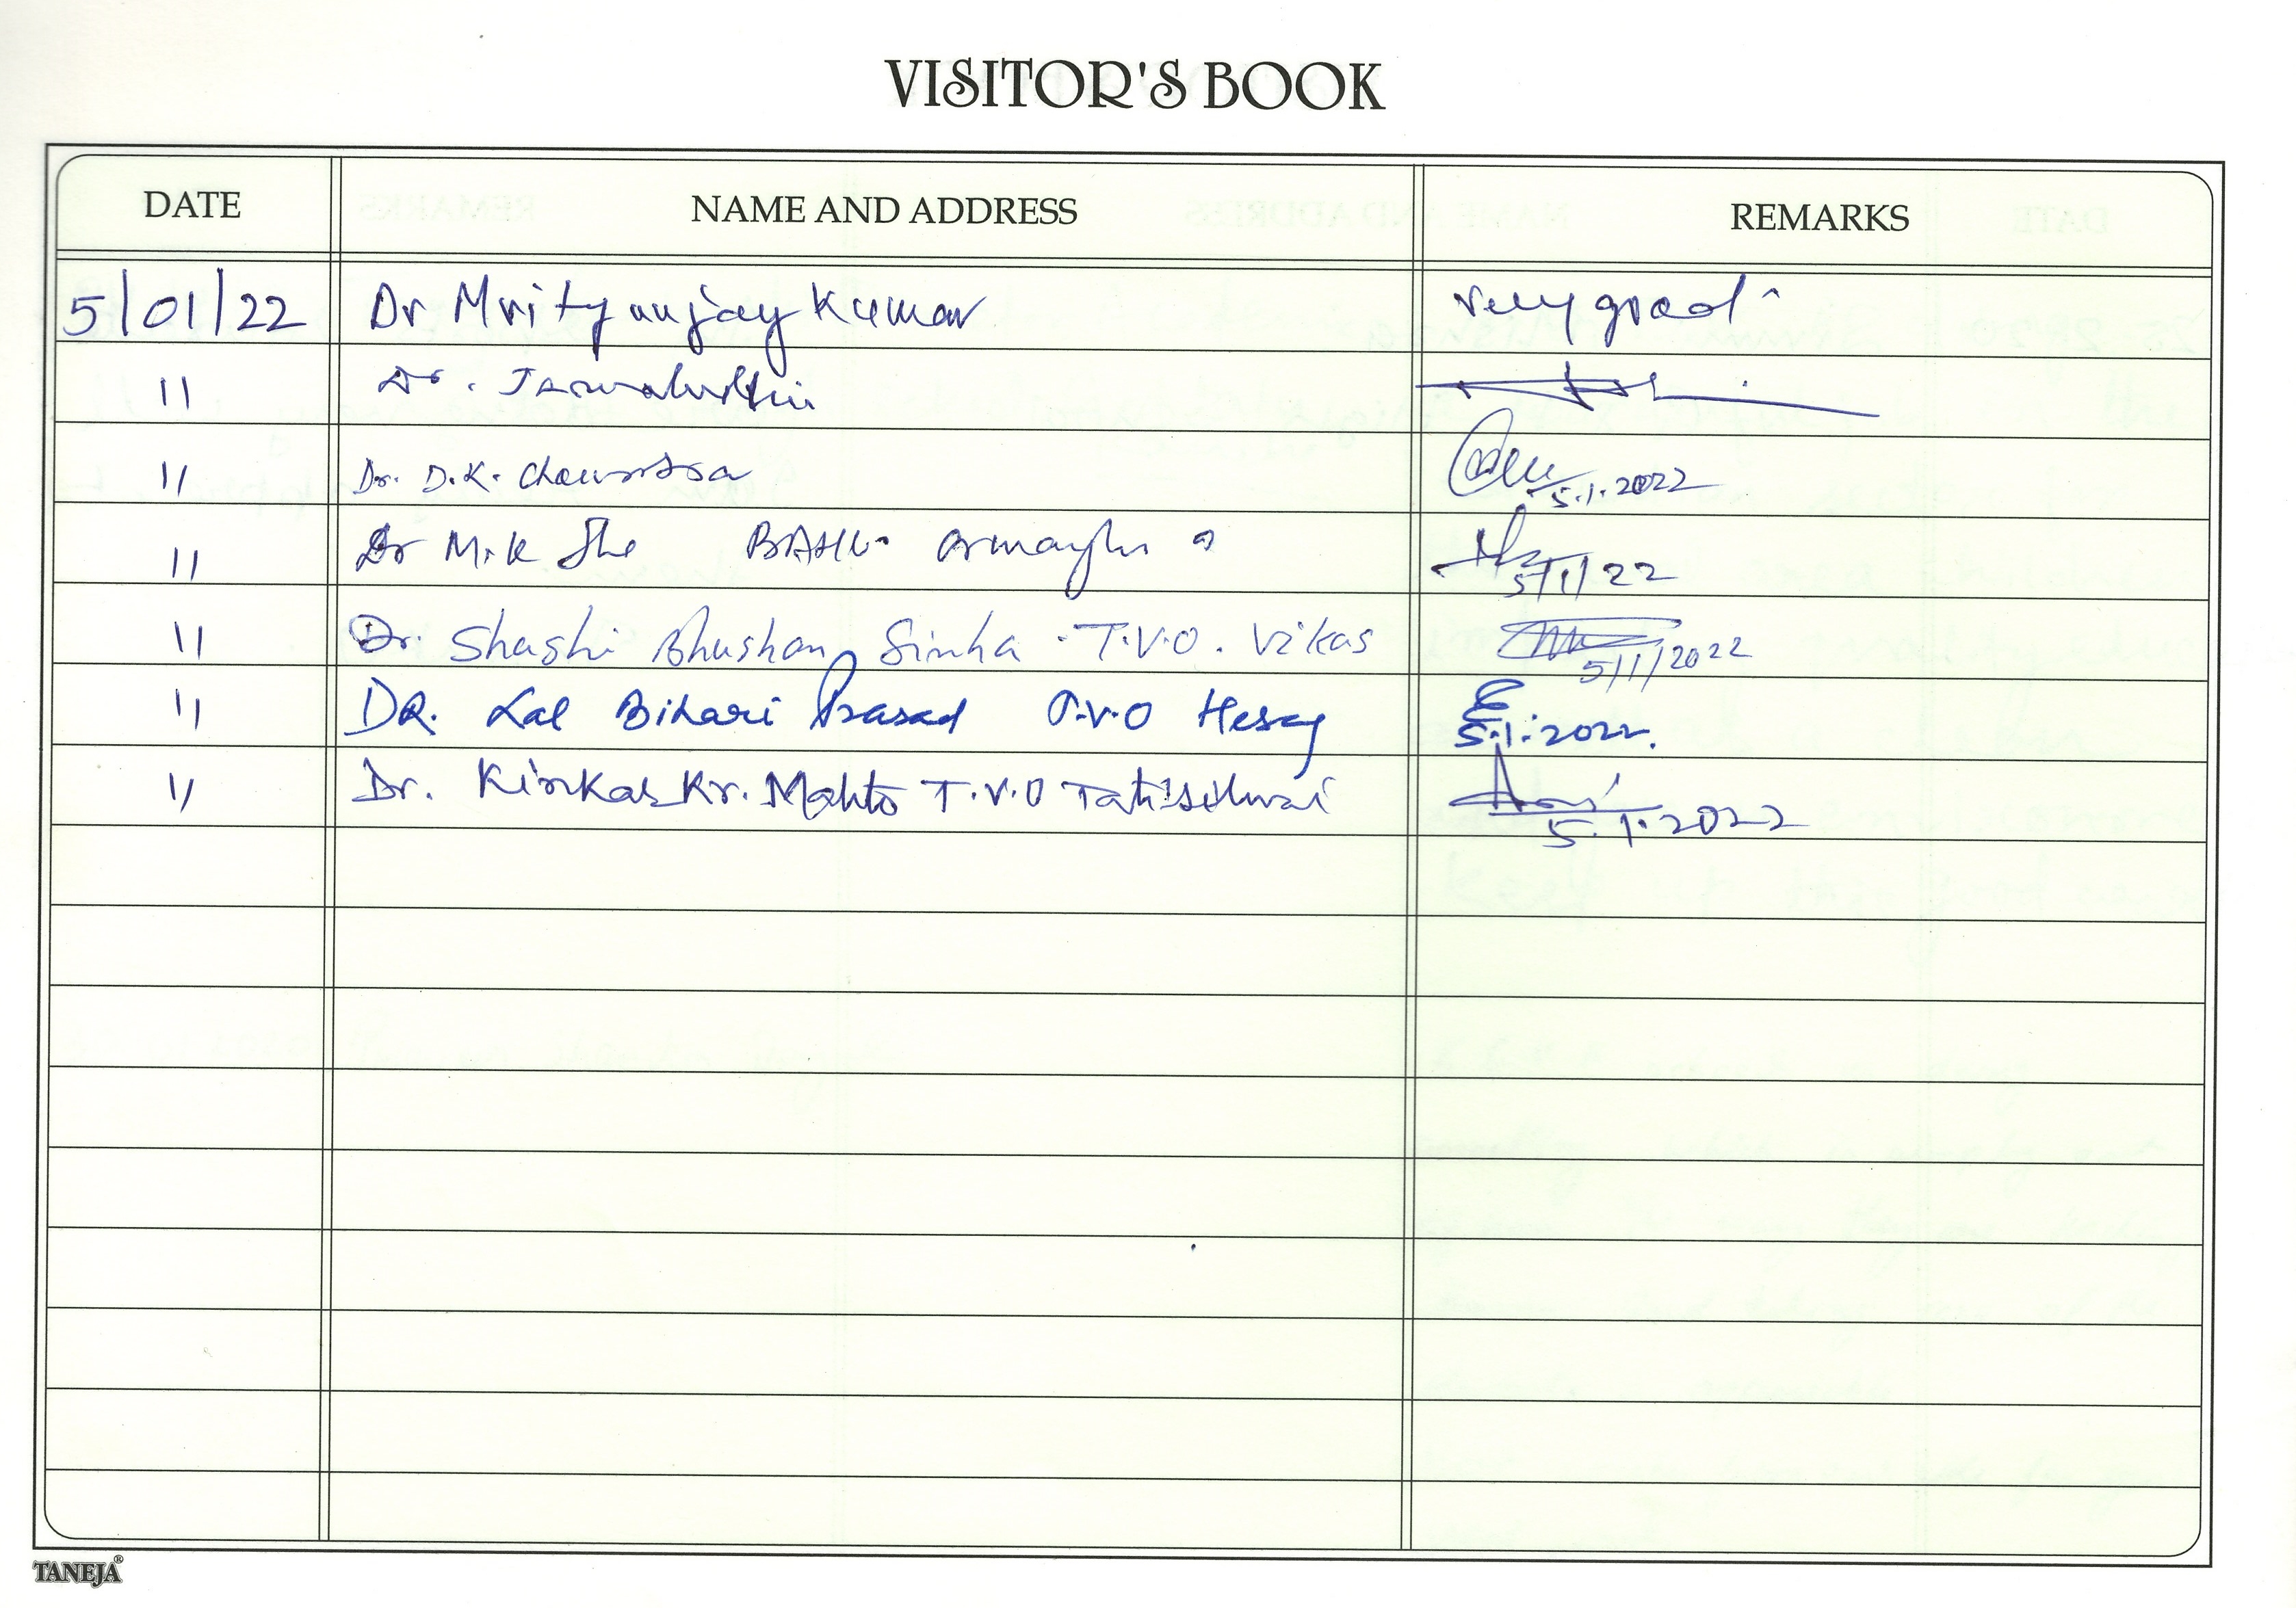 VISITOR'S BOOK
DATE NAME AND ADDRESS REMARKS
5/01/22 Dr Mrityunjay Kumar very good
11 Dr.
11 Dr. D.K. Chourasia 5.1.2022
11 Dr M.K Jha BAHO 5/1/22
11 Dr. Shashi Bhushan Sinha T.V.O. Vikas 5/1/2022
11 DR. Lal Bihari Prasad T.V.O Hesag 5.1.2022.
11 Dr. Kinkar Kr. Mahto T.V.O Tatisilwai 5.1.2022
TANEJA®